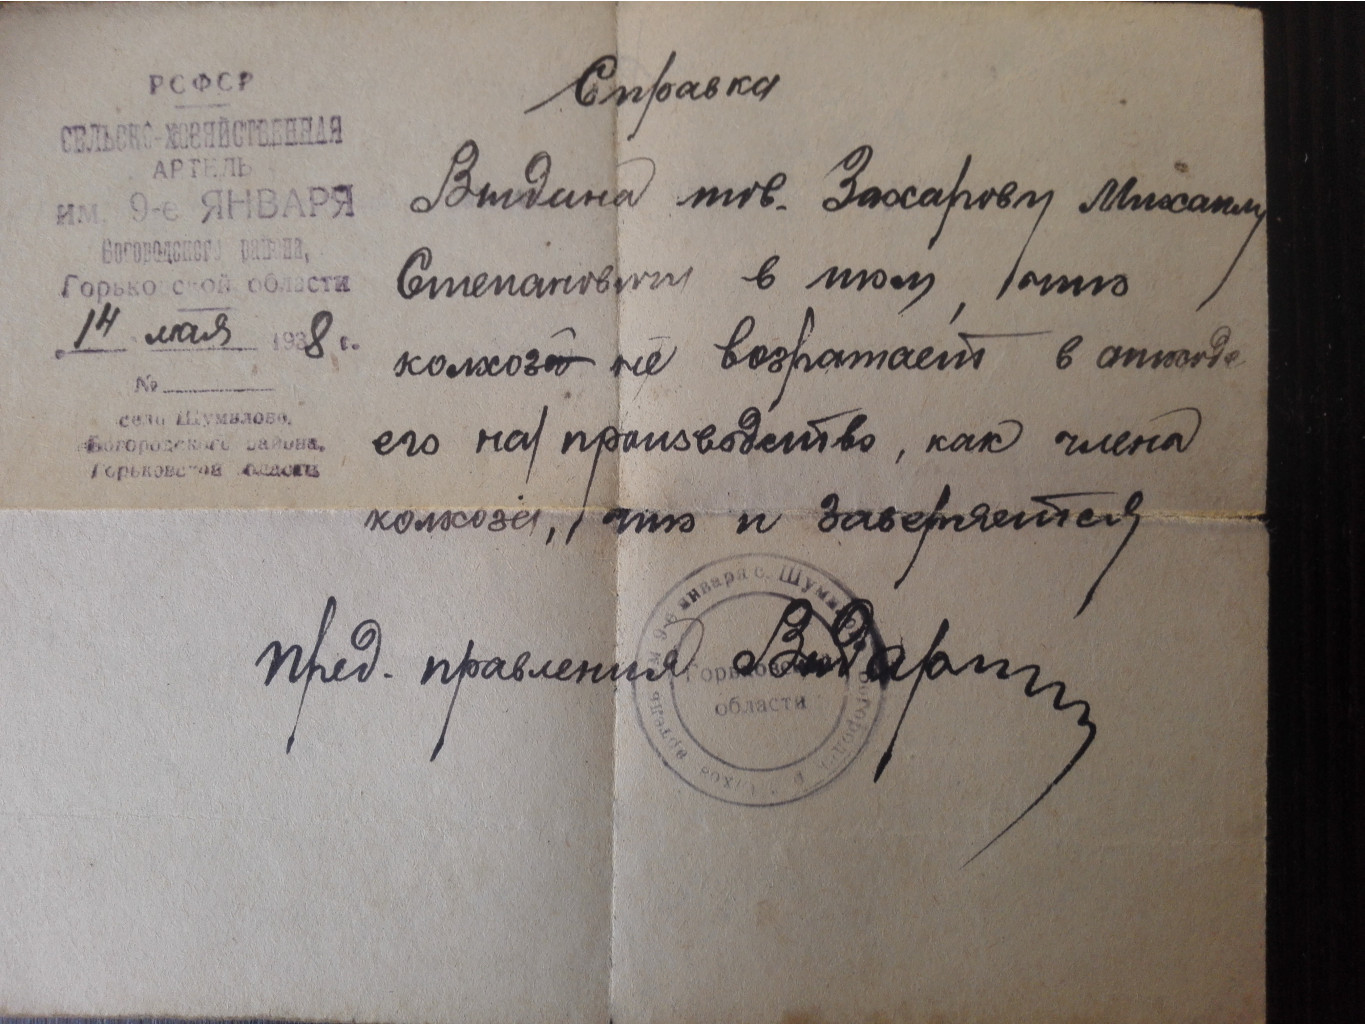 РСФСР
СЕЛЬСКО-ХОЗЯЙСТВЕННАЯ
АРТЕЛЬ
им. 9-е ЯНВАРЯ
Богородского района,
Горьковской области
14 мая 1938 г.
№
село Шумилово,
Богородского района,
Горьковской области
Справка
Выдана тов. Захарову Михаилу
Степановичу в том, что
колхоз не возратает в отходе
его на производство, как члена
колхоза, что и заверяется
Пред. правления
9-е января с. Шумилово Богородск. р. артель
Горьковской
области